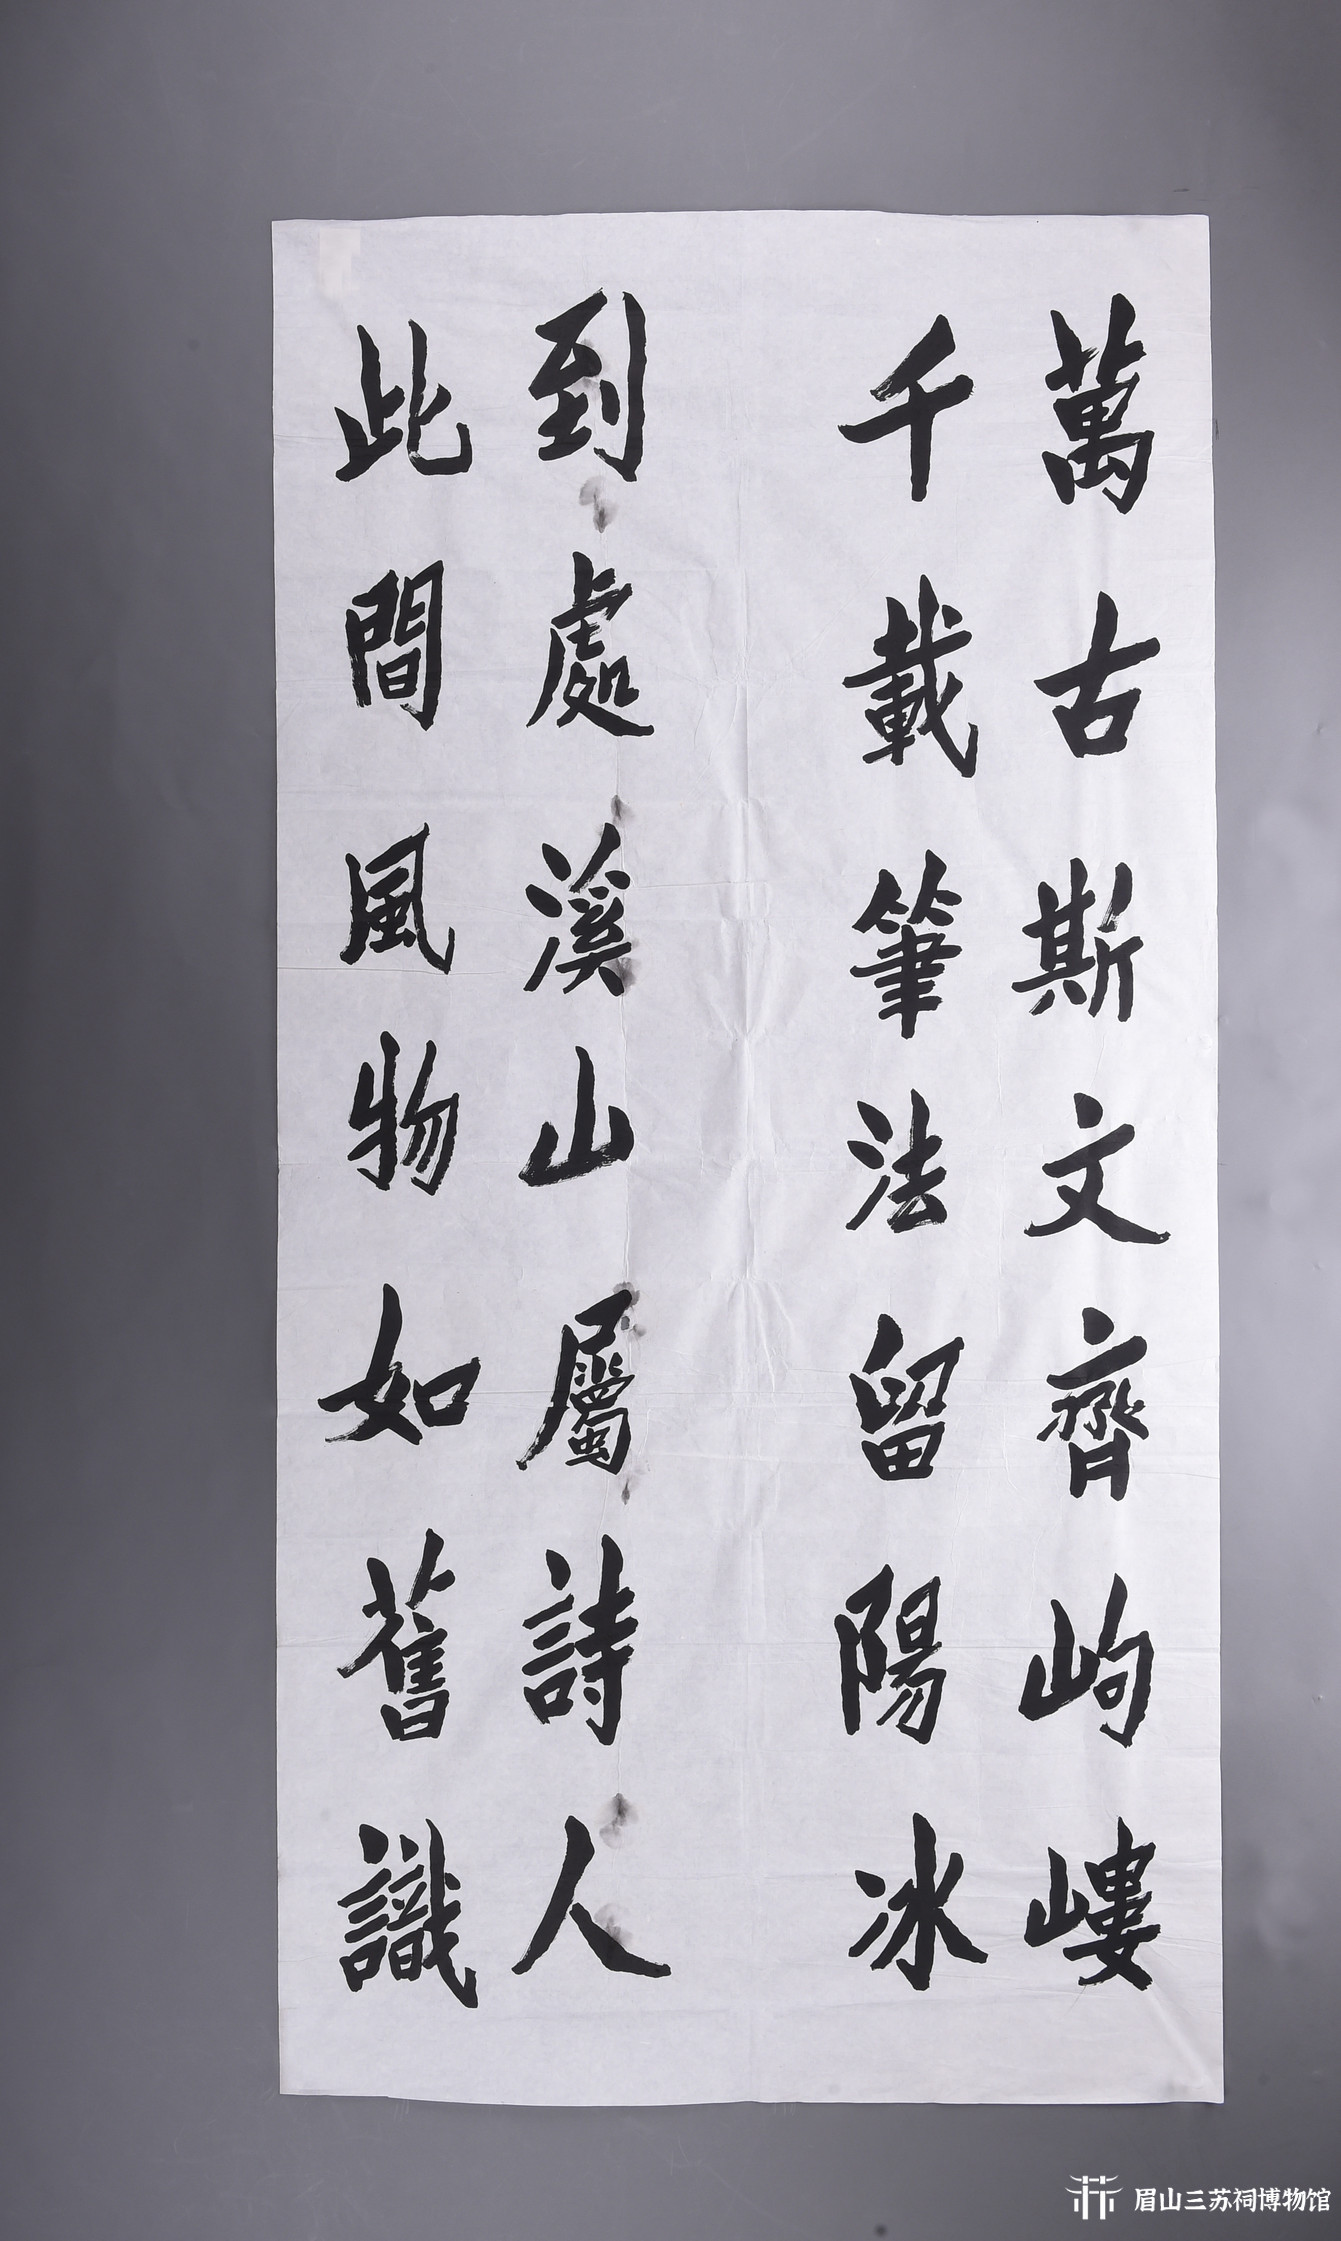 萬古斯文齊岣嶁
千載筆法留陽冰
到處溪山屬詩人
此間風物如舊識
眉山三苏祠博物馆